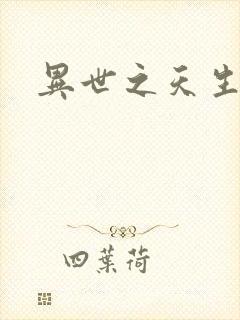 異世之天生
四葉荷